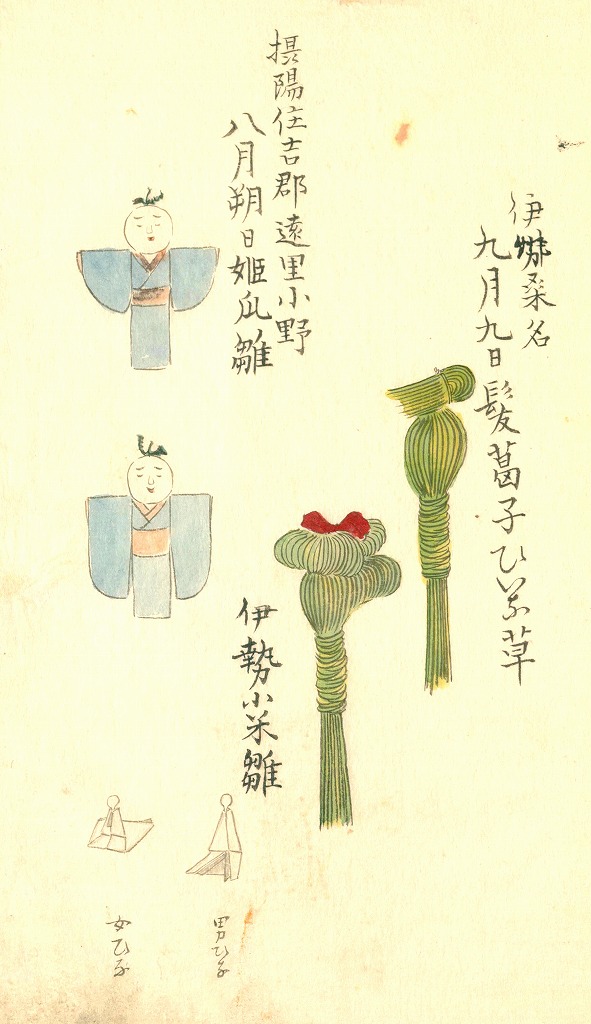 伊勢桑名
九月九日髪葛子ひいな草
摂陽住吉郡遠里小野
八月朔日姫瓜雛
伊勢小米雛
男ひな
女ひな